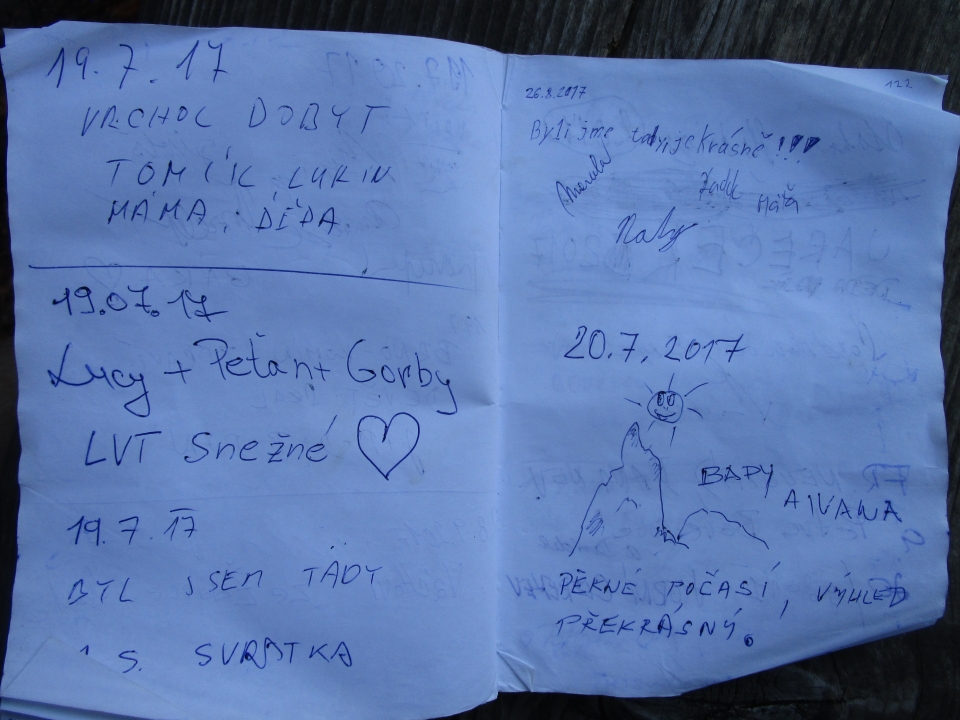 19.7.17
VRCHOL DOBYT
TOMÍK, LUKIN
MÁMA, DĚDA
19.07.17
Lucy + Peťan + Gorby
LVT Sněžné
19.7.17
BYL JSEM TADY
S. SVRATKA
26.8.2017
122
Byli jme tady je krásně !!!
Máťa
20.7.2017
BAPY
A IVANA
PĚKNÉ POČASÍ, VÝHLED
PŘEKRÁSNÝ.